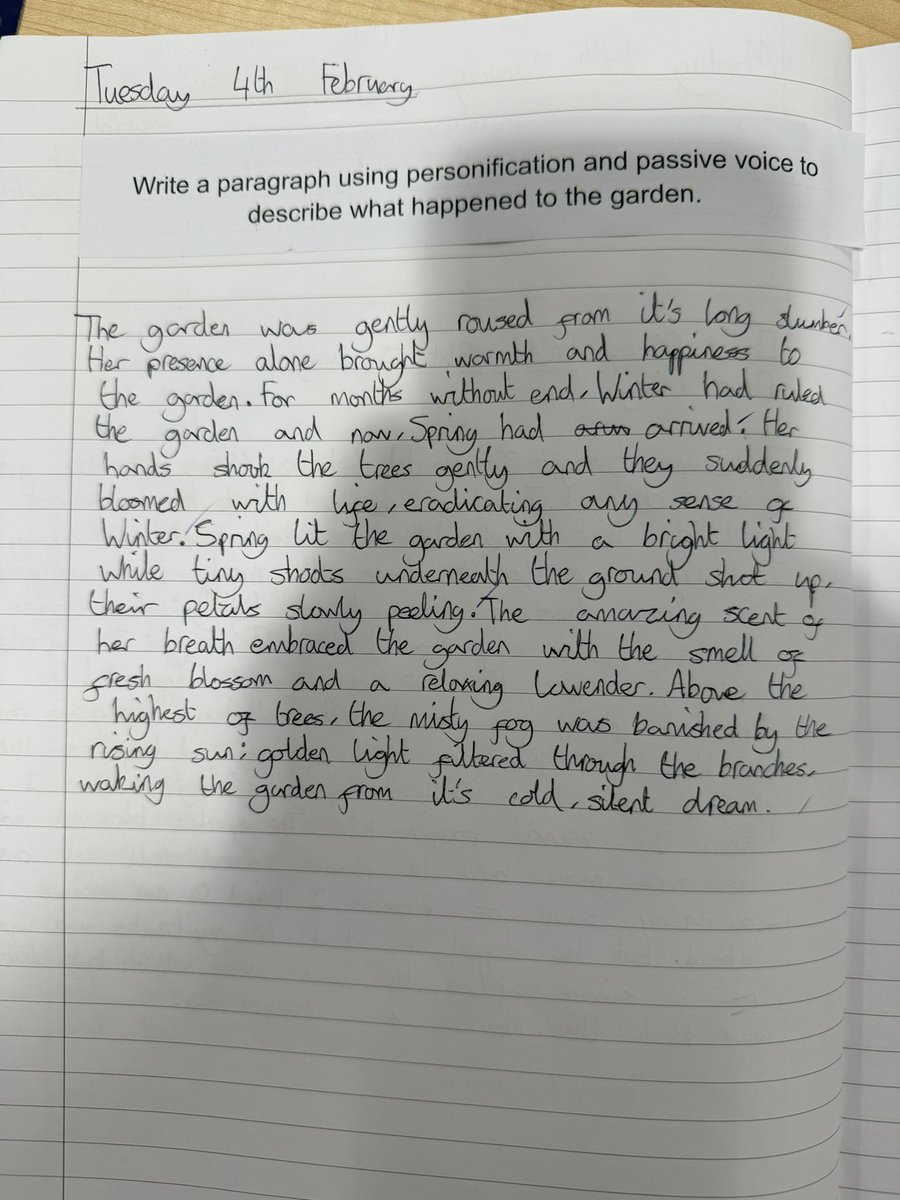 Tuesday 4th February
Write a paragraph using personification and passive voice to
describe what happened to the garden.
The garden was gently roused from it's long slumber.
Her presence alone brought warmth and happiness to
the garden. For months without end, Winter had ruled
the garden and now, Spring had arrived. Her
hands shook the trees gently and they suddenly
bloomed with life, eradicating any sense of
Winter. Spring lit the garden with a bright light
while tiny shoots underneath the ground shot up,
their petals slowly peeling. The amazing scent of
her breath embraced the garden with the smell of
fresh blossom and a relaxing lavender. Above the
highest of trees, the misty fog was banished by the
rising sun; golden light filtered through the branches,
waking the garden from it's cold, silent dream.